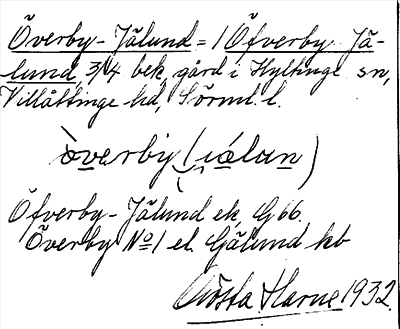 Överby-Jälund = 1 Öfverby Jä-
lund, 3/4 bek, gård i Hyltinge sn,
Villåttinge hd, Sörml. l.
òverby (iálun)
Öfverby-Jälund ek, G66.
Överby No1 el. Gälund kb
Gösta Harne 1932.